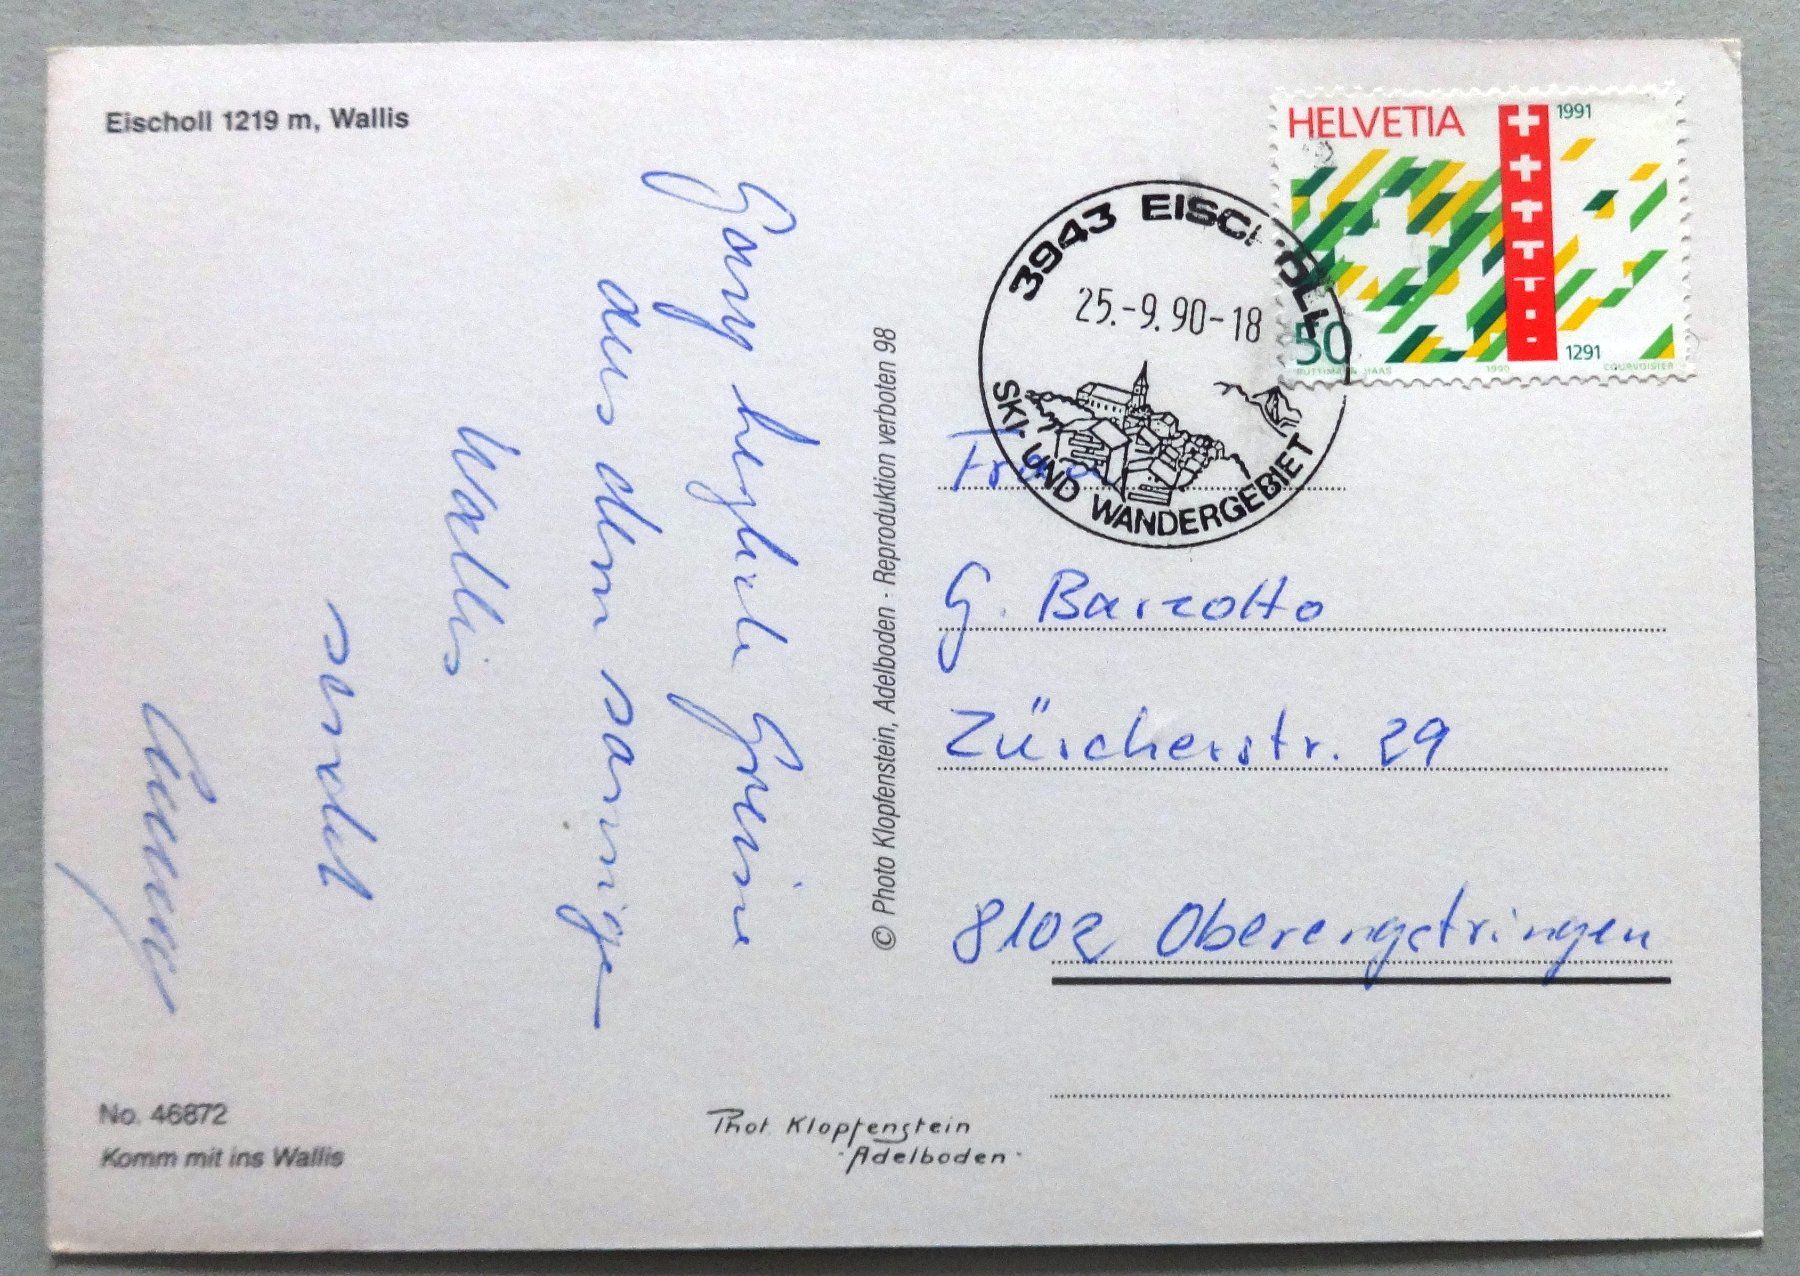 Eischoll 1219 m, Wallis
Ganz herzliche Grüsse
aus dem sonnige
Wallis
sendet
No. 46872
Komm mit ins Wallis
© Photo Klopfenstein, Adelboden - Reproduktion verboten 98
Phot Klopfenstein
Adelboden
HELVETIA
1991
50
1291
1990
COURVOISIER
3943 EISCHOLL
25.-9.90-18
SKI- UND WANDERGEBIET
Frau
G. Barzotto
Zürcherstr. 29
8102 Oberengstringen